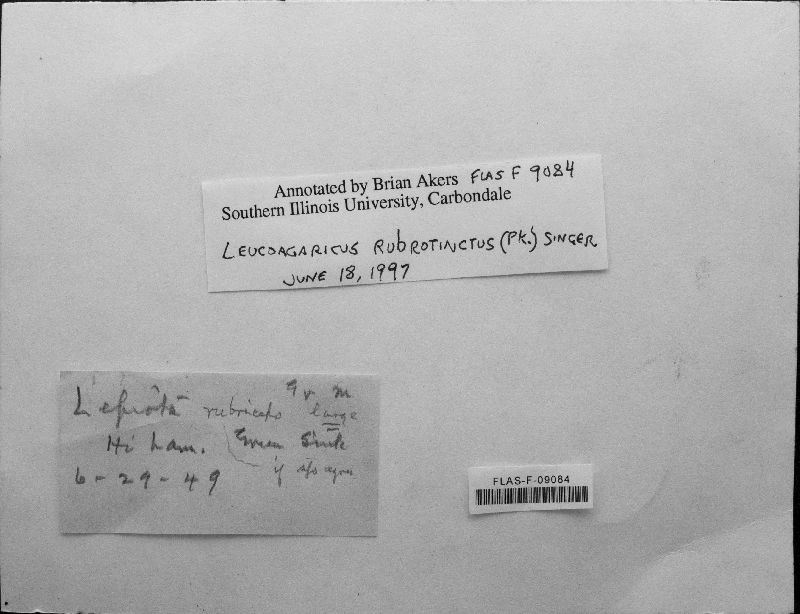 Annotated by Brian Akers FLAS F 9084
Southern Illinois University, Carbondale
LEUCOAGARICUS RUBROTINCTUS (Pk.) SINGER
JUNE 18, 1997
Lepiota rubriceps large
Hi ham. Green Sink
6-29-49 if
FLAS-F-09084